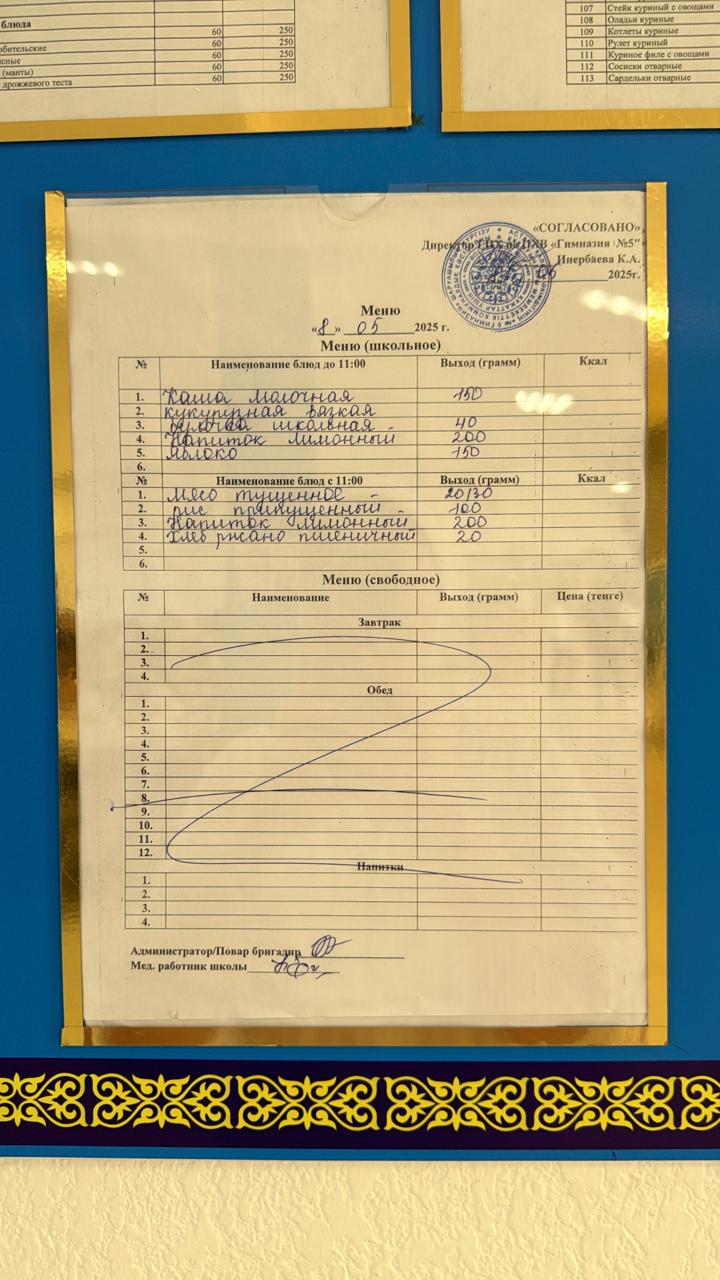 блюда
60 250
60 250
(манты) 60 250
дрожжевого теста 60 250
107 Стейк куриный с овощами
108 Оладьи куриные
109 Котлеты куриные
110 Рулет куриный
111 Куриное филе с овощами
112 Сосиски отварные
113 Сардельки отварные
«СОГЛАСОВАНО»
Директор ПХВ «Гимназия №5"
Инербаева К.А.
2025г.
Меню
«8» 05 2025 г.
Меню (школьное)
№ Наименование блюд до 11:00 Выход (грамм) Ккал
1. Каша молочная 150
2. кукурузная вязкая
3. Булочка школьная - 40
4. Напиток лимонный 200
5. Яблоко 150
6.
№ Наименование блюд с 11:00 Выход (грамм) Ккал
1. Мясо тушенное - 20/30
2. рис припущенный - 100
3. Напиток лимонный 200
4. Хлеб ржано пшеничный 20
5.
6.
Меню (свободное)
№ Наименование Выход (грамм) Цена (тенге)
Завтрак
1.
2.
3.
4.
Обед
1.
2.
3.
4.
5.
6.
7.
8.
9.
10.
11.
12.
Напитки
1.
2.
3.
4.
Администратор/Повар бригадир
Мед. работник школы